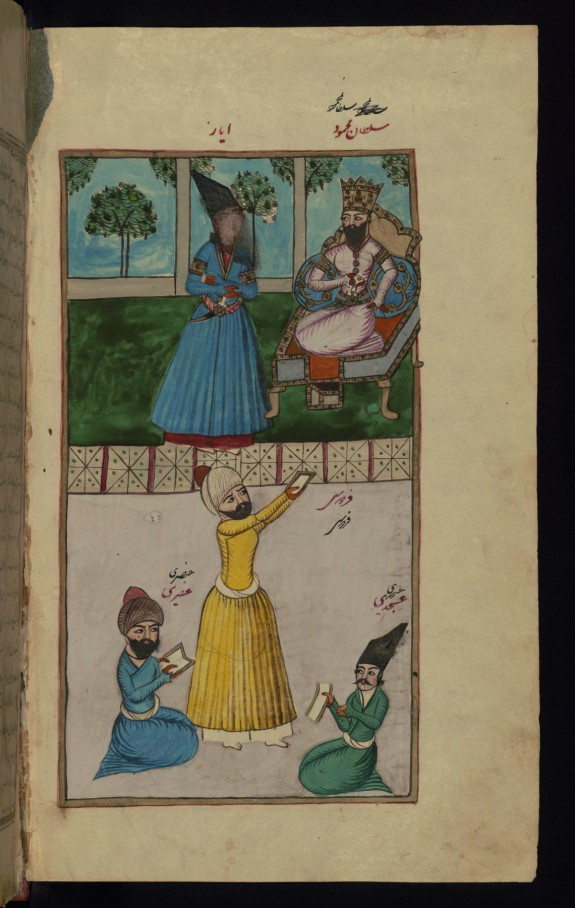 سلطان محمود
ایاز
سلطان محمود
فردوسی
فردوسی
عنصری
عنصری
عسجدی